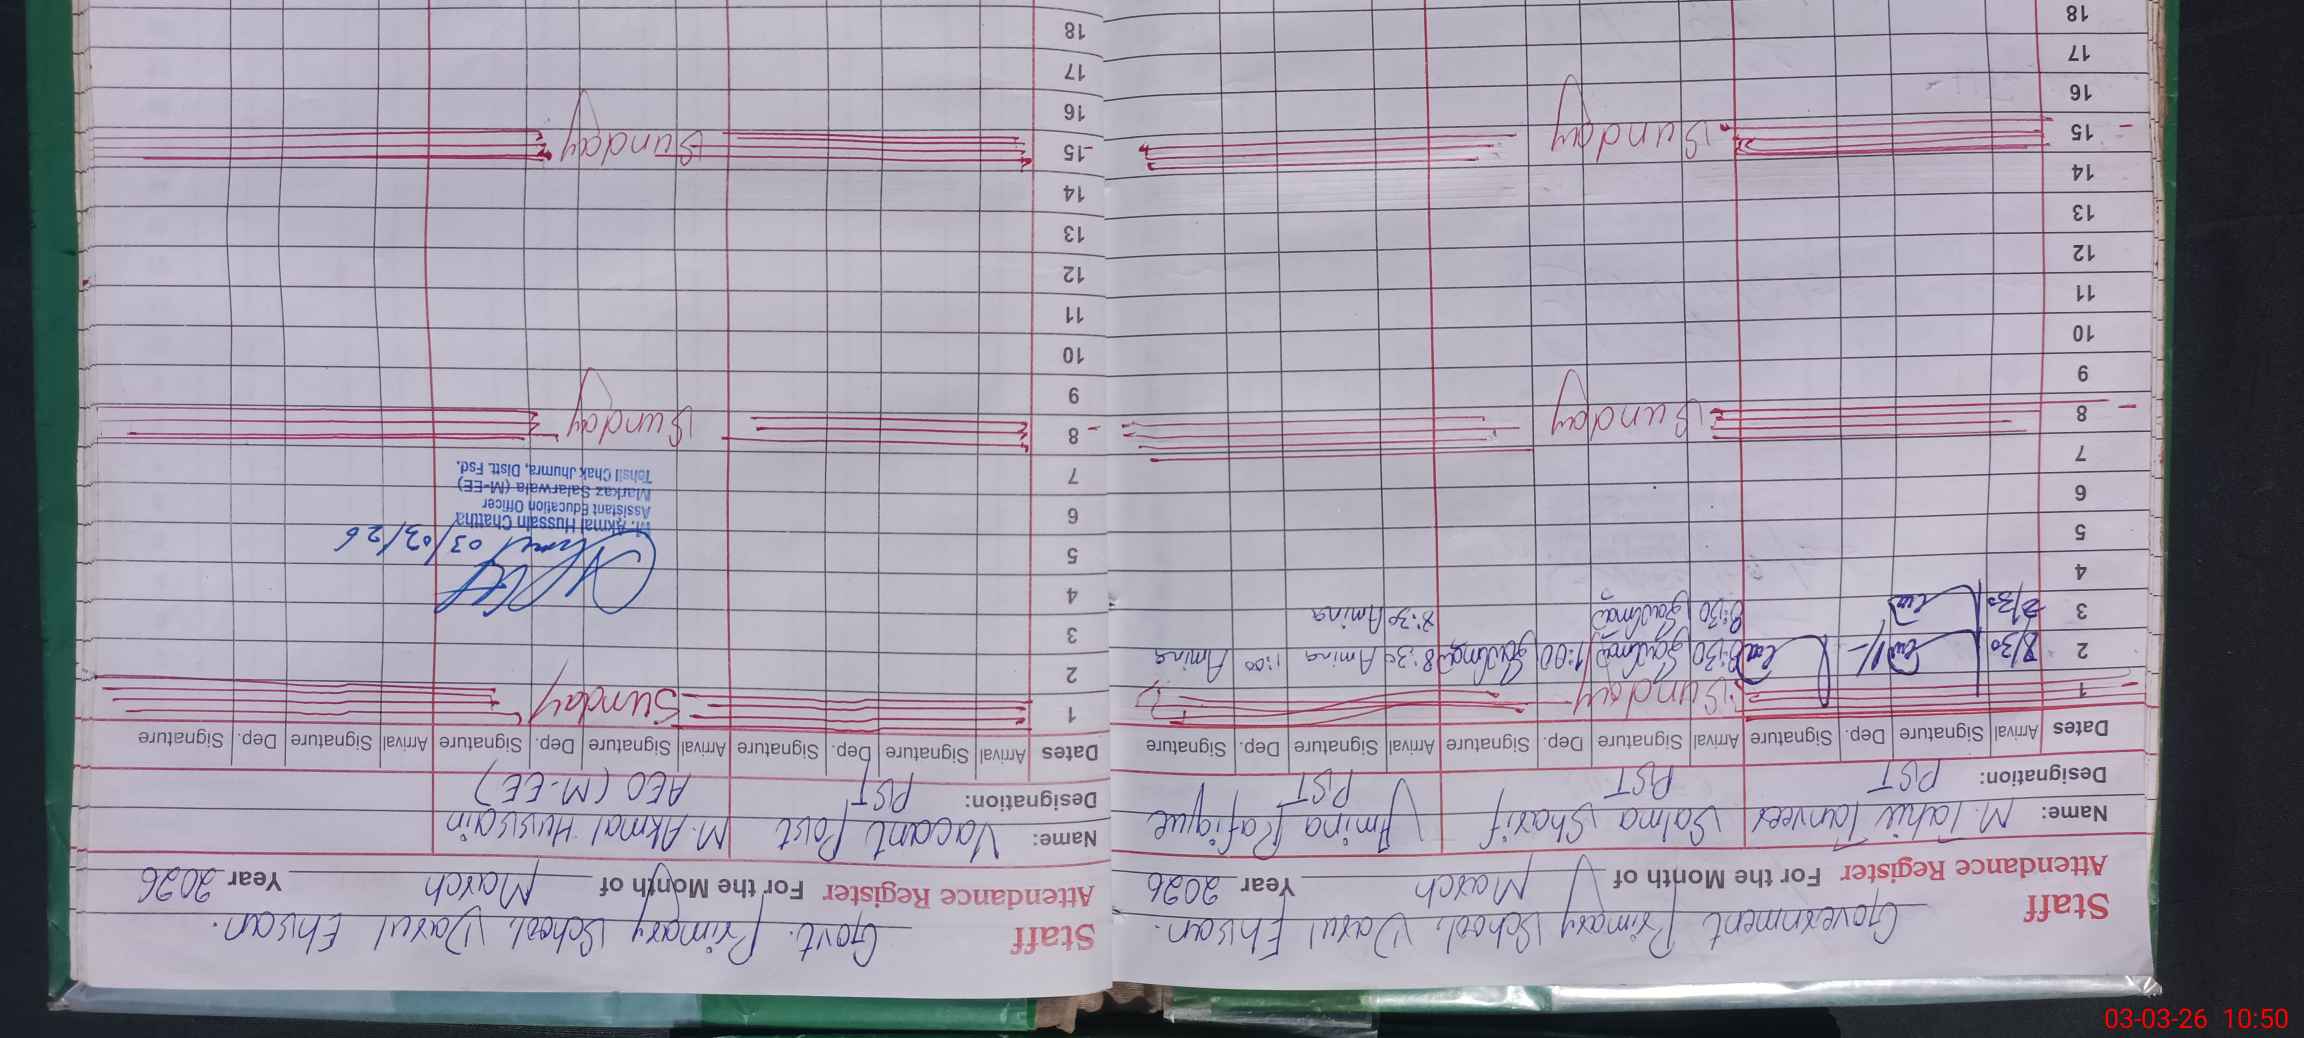 Staff
Attendance Register
Government Primary School, Darul Ehsan.
For the Month of March Year 2026
Name: M. Tahir Tanveer Salma Sharif Amina Rafique
Designation: PST PST PST
Dates Arrival Signature Dep. Signature Arrival Signature Dep. Signature Arrival Signature Dep. Signature
1 Sunday
2 8/30 1/- 8:30 Salma 1:00 Salma 8:30 Amina 1:00 Amina
3 8/30 8:30 Salma 8:30 Amina
4
5
6
7
8 Sunday
9
10
11
12
13
14
15 Sunday
16
17
18
Staff
Attendance Register
Govt. Primary School, Darul Ehsan.
For the Month of March Year 2026
Name: Vacant Post M. Akmal Hussain
Designation: PST AEO (M-EE)
Dates Arrival Signature Dep. Signature Arrival Signature Dep. Signature Arrival Signature Dep. Signature
1 Sunday
2
3
4
5
6
7
03/03/26
M. Akmal Hussain Chattha
Assistant Education Officer
Markaz Salarwala (M-EE)
Tehsil Chak Jhumra, Distt. Fsd.
8 Sunday
9
10
11
12
13
14
15 Sunday
16
17
18
03-03-26 10:50